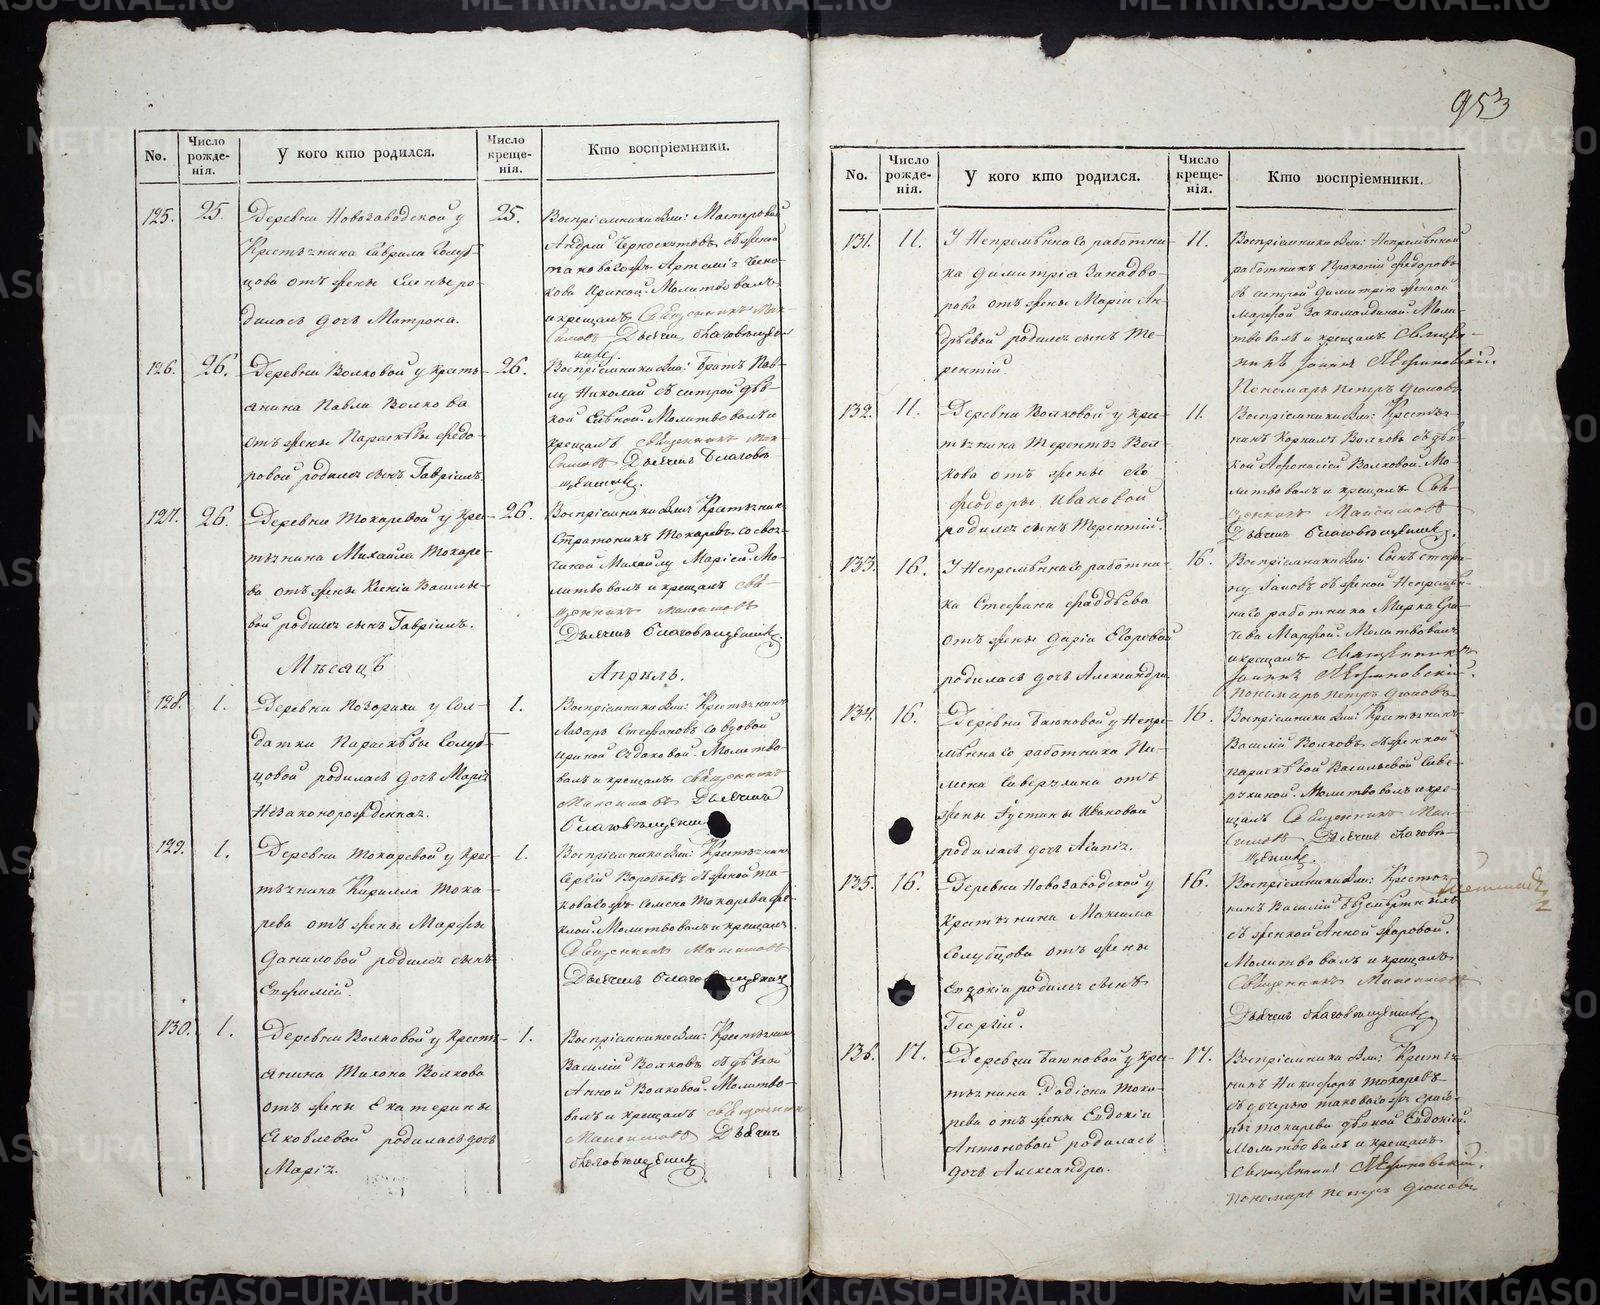 953
No.
Число рожде-нія.
У кого кто родился.
Число креще-нія.
Кто воспріемники.
125.
25.
Деревни Новозаводской у
Крестьянина Гаврила Голуб-
цова отъ жены Елены ро-
дилась дочь Матрона.
25.
Воспріемники были: Мастеровой
Андрей съ женой
таковагожъ
Ириной. Молитвовалъ
и крещалъ Священникъ Мак-
симовъ Дьячекъ Благовѣщен-
126.
26.
Деревни Волковой у кресть-
янина Павла Волкова
отъ жены Параскѣвы Ѳедо-
ровой родился сынъ Гавріилъ.
26.
Воспріемники были: братъ Пав-
лу Николай съ сестрой дѣв-
кой Молитвовалъ и
крещалъ священникъ Мак-
симовъ Дьячекъ Благовѣ-
щенскій.
127.
26.
Деревни Токаревой у крес-
тьянина Михаила Токаре-
ва отъ жены Ксеніи Василье-
вой родился сынъ Гавріилъ.
26.
Воспріемники были Крестьянинъ
Стратоникъ Токаревъ со своя-
чиной Михаилу Маріей. Мо-
литвовалъ и крещалъ свя-
щенникъ Максимовъ
Дьячекъ Благовѣщенскій.
Мѣсяцъ
Апрѣль.
128.
1.
Деревни Позарихи у Сол-
датки Параскѣвы Голуб-
цовой родилась дочь Марія
Незаконорожденная.
1.
Воспріемники были: Крестьянинъ
Лазарь Стефановъ со вдовой
Ириной Молитво-
валъ и крещалъ священникъ
Максимовъ Дьячекъ
Благовѣщенскій
129.
1.
Деревни Токаревой у крес-
тьянина Кирилла Тока-
рева отъ жены Марѳы
Даниловой родился сынъ
Евфимій.
1.
Воспріемники были: Крестьянинъ
Сергій Воробьевъ съ женой та-
коваго жъ Семена Токарева Ѳе-
клой. Молитвовалъ и крещалъ
Священникъ Максимовъ
Дьячекъ Благовѣщенскій
130.
1.
Деревни Волковой у кресть-
янина Тихона Волкова
отъ жены Екатерины
Яковлевой родилась дочь
Марія.
1.
Воспріемники были: Крестьянинъ
Василій Волковъ съ дѣвкой
Анной Волковой. Молитво-
валъ и крещалъ священникъ
Максимовъ Дьячекъ
Благовѣщенскій
No.
Число рожде-нія.
У кого кто родился.
Число креще-нія.
Кто воспріемники.
131.
11.
У Непремѣннаго работни-
ка Димитрія Занадво-
рова отъ жены Маріи Ан-
дрѣевой родился сынъ Те-
рентій.
11.
Воспріемники были: Непремѣнной
работникъ Прокопій Ѳедоровъ
съ сестрой Димитрію женкой
Марѳой Закамалдиной. Моли-
твовалъ и крещалъ Священ-
никъ Іоаннъ
Пономарь Петръ Дюковъ
132.
11.
Деревни Волковой у крес-
тьянина Терентія Вол-
кова отъ жены его
Ѳеодоры Ивановой
родился сынъ Терентій.
11.
Воспріемники были: Крестья-
нинъ Корнилъ Волковъ съ дѣв-
кой Аѳонасіей Волковой. Мо-
литвовалъ и крещалъ Свя-
щенникъ Максимовъ
Дьячекъ Благовѣщенскій.
133.
16.
У Непремѣннаго работни-
ка Стефана Ѳаддѣева
отъ жены Даріи Егоровой
родилась дочь Александра.
16.
Воспріемники были: Сынъ Стефа-
ну Іаковъ съ женой Непремѣн-
наго работника Марка
Марѳой. Молитвовалъ
и крещалъ Священникъ
Іоаннъ
Пономарь Петръ Дюковъ
134.
16.
Деревни Баюновой у Непре-
мѣннаго работника Пи-
мена Сивѣрзина отъ
жены Густины Ивановой
родилась дочь Агапія.
16.
Воспріемники были: Крестьянинъ
Василій Волковъ съ женкой
Параскѣвой Васильевой Сивѣ-
рзиной. Молитвовалъ и кре-
щалъ Священникъ Мак-
симовъ Дьячекъ Благовѣ-
щенскій.
135.
16.
Деревни Новозаводской у
крестьянина Максима
Голубцова отъ жены
Евдокіи родился сынъ
Георгій.
16.
Воспріемники были: Крестья-
нинъ Василій Безсмертныхъ
съ женкой Анной
Молитвовалъ и крещалъ
Священникъ Максимовъ
Дьячекъ Благовѣщенскій
136.
17.
Деревни Баюновой у крес-
тьянина Родіона Тока-
рева отъ жены Евдокіи
Антоновой родилась
дочь Александра.
17.
Воспріемники были: Крестья-
нинъ Никифоръ Токаревъ
съ дочерью таковагожъ
Токарева дѣвкой Евдокіей.
Молитвовалъ и крещалъ
Священникъ
Пономарь Петръ Дюковъ
METRIKI.GASO-URAL.RU